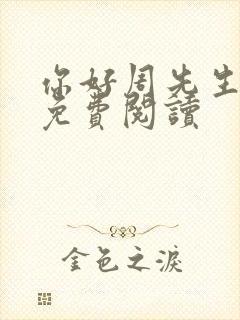 你好周先生
免費閱讀
金色之淚